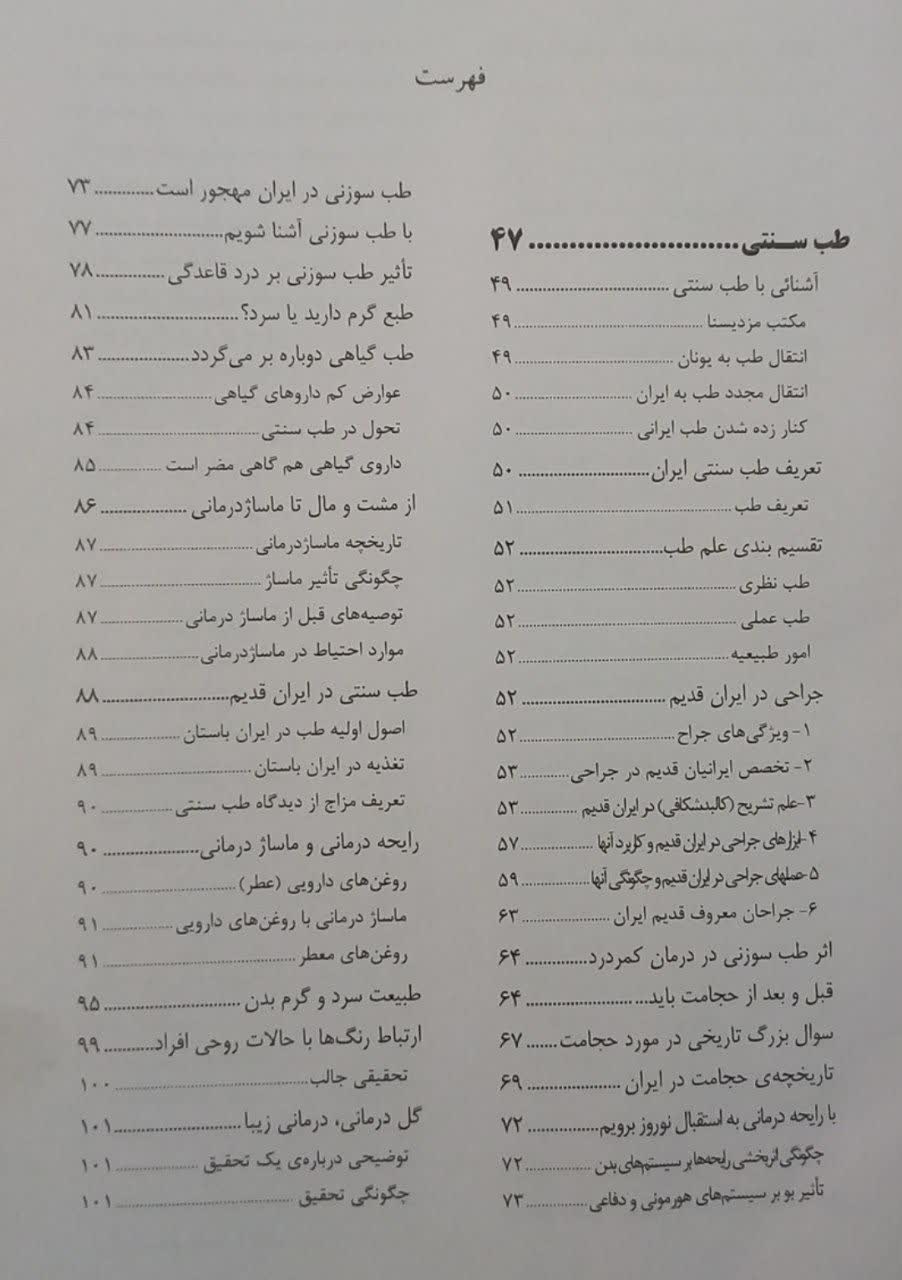 فهرست
طب سـنتی .......................... ۴۷
آشنائی با طب سنتی .......................... ۴۹
مکتب مزدیسنا .......................... ۴۹
انتقال طب به یونان .......................... ۴۹
انتقال مجدد طب به ایران .......................... ۵۰
کنار زده شدن طب ایرانی .......................... ۵۰
تعریف طب سنتی ایران .......................... ۵۰
تعریف طب .......................... ۵۱
تقسیم بندی علم طب .......................... ۵۲
طب نظری .......................... ۵۲
طب عملی .......................... ۵۲
امور طبیعیه .......................... ۵۲
جراحی در ایران قدیم .......................... ۵۲
۱- ویژگی‌های جراح .......................... ۵۲
۲- تخصص ایرانیان قدیم در جراحی ............ ۵۳
۳-علم تشریح (کالبدشکافی) در ایران قدیم .............. ۵۳
۴-ابزارهای جراحی در ایران قدیم و کاربرد آنها .................. ۵۷
۵-عملهای جراحی در ایران قدیم و چگونگی آنها .................. ۵۹
۶- جراحان معروف قدیم ایران .................... ۶۳
اثر طب سوزنی در درمان کمردرد ............. ۶۴
قبل و بعد از حجامت باید .......................... ۶۴
سوال بزرگ تاریخی در مورد حجامت ....... ۶۷
تاریخچه‌ی حجامت در ایران .................... ۶۹
با رایحه درمانی به استقبال نوروز برویم ............... ۷۲
چگونگی اثربخشی رایحه‌ها بر سیستم‌های بدن ................ ۷۲
تأثیر بو بر سیستم‌های هورمونی و دفاعی .............. ۷۳
طب سوزنی در ایران مهجور است ............ ۷۳
با طب سوزنی آشنا شویم .......................... ۷۷
تأثیر طب سوزنی بر درد قاعدگی .............. ۷۸
طبع گرم دارید یا سرد؟ .......................... ۸۱
طب گیاهی دوباره بر می‌گردد ................... ۸۳
عوارض کم داروهای گیاهی .......................... ۸۴
تحول در طب سنتی .......................... ۸۴
داروی گیاهی هم گاهی مضر است ............... ۸۵
از مشت و مال تا ماساژدرمانی ................. ۸۶
تاریخچه ماساژدرمانی .......................... ۸۷
چگونگی تأثیر ماساژ .......................... ۸۷
توصیه‌های قبل از ماساژ درمانی .................... ۸۷
موارد احتیاط در ماساژدرمانی ........................ ۸۸
طب سنتی در ایران قدیم .......................... ۸۸
اصول اولیه طب در ایران باستان ................... ۸۹
تغذیه در ایران باستان .......................... ۸۹
تعریف مزاج از دیدگاه طب سنتی .................... ۹۰
رایحه درمانی و ماساژ درمانی ................... ۹۰
روغن‌های دارویی (عطر) .......................... ۹۰
ماساژ درمانی با روغن‌های دارویی ................. ۹۱
روغن‌های معطر .......................... ۹۱
طبیعت سرد و گرم بدن .......................... ۹۵
ارتباط رنگ‌ها با حالات روحی افراد .......... ۹۹
تحقیقی جالب .......................... ۱۰۰
گل درمانی، درمانی زیبا .......................... ۱۰۱
توضیحی درباره‌ی یک تحقیق ..................... ۱۰۱
چگونگی تحقیق .......................... ۱۰۱